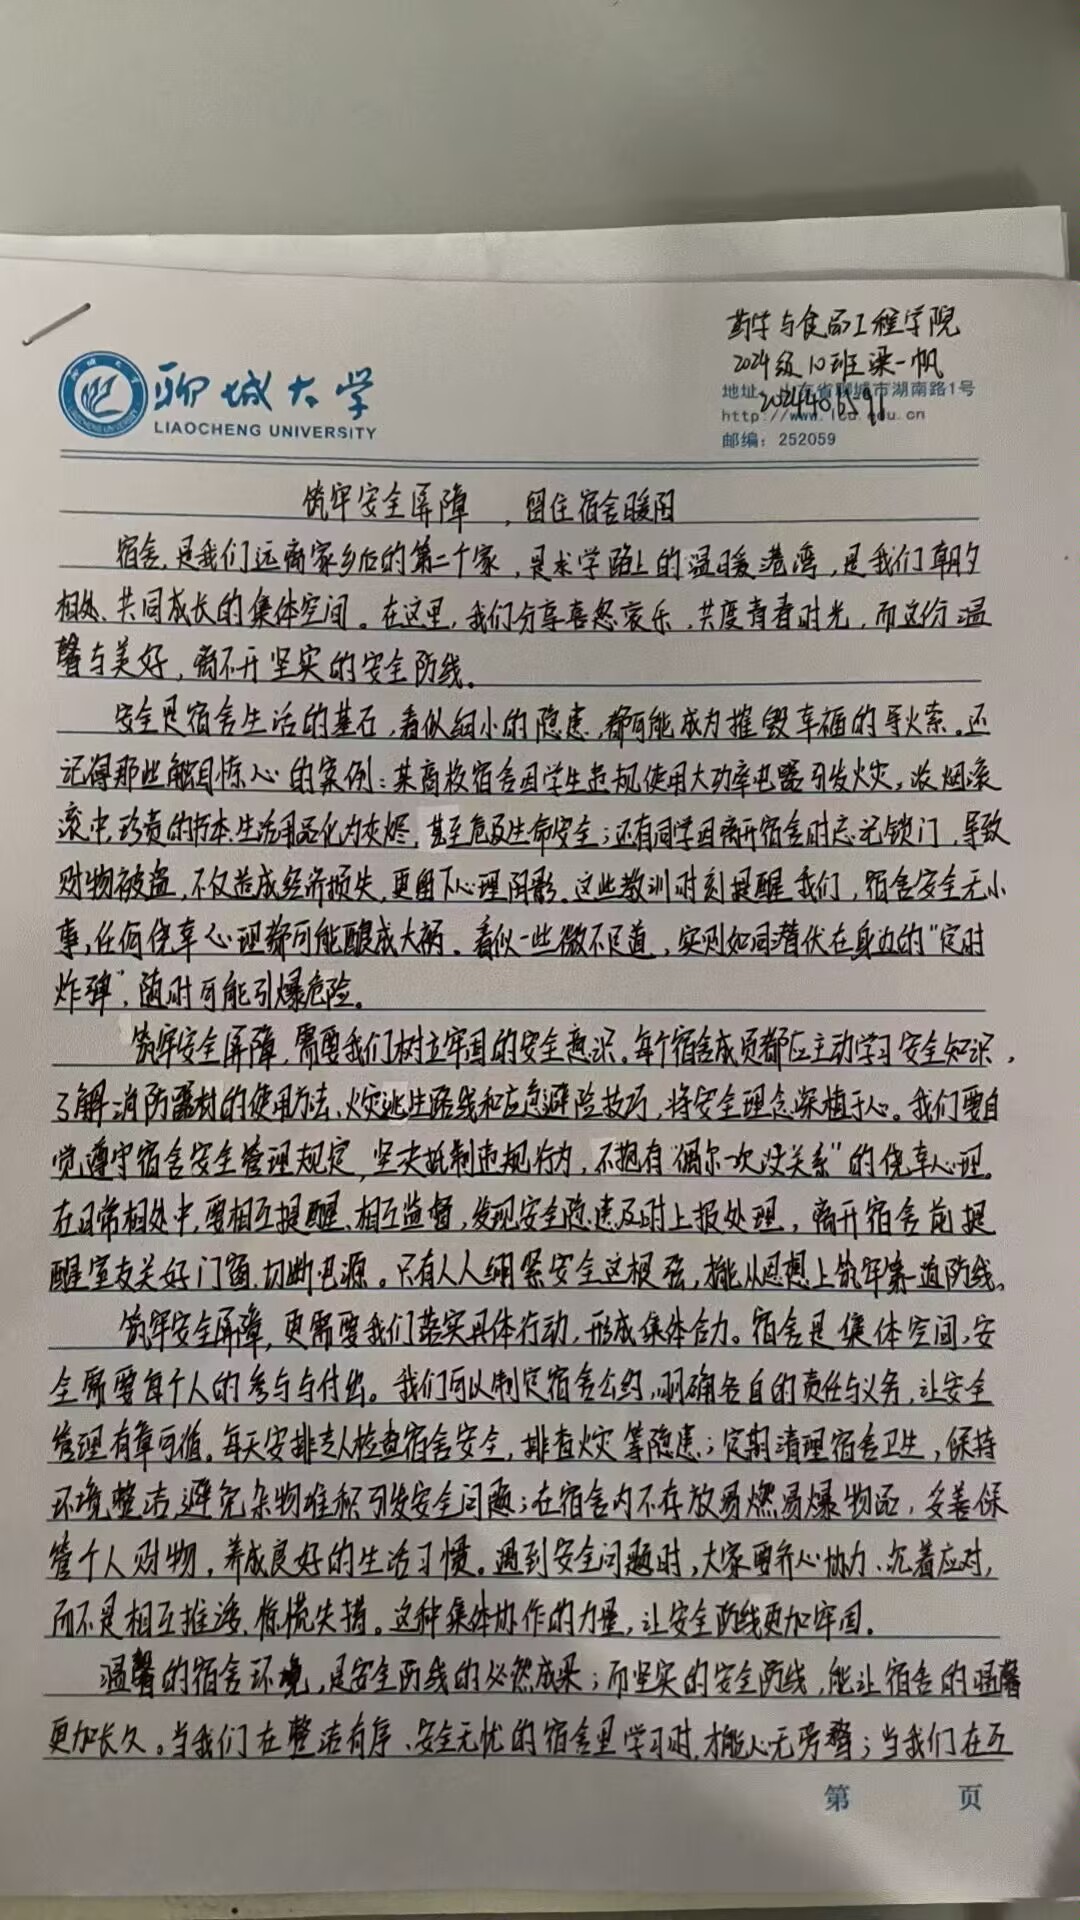 药学与食品工程学院
2024级10班梁一帆
聊城大学
LIAOCHENG UNIVERSITY
地址：山东省聊城市湖南路1号
http://www.lcu.edu.cn
邮编：252059
筑牢安全屏障，留住宿舍暖阳
宿舍，是我们远离家乡后的第二个家，是求学路上的温暖港湾，是我们朝夕
相处、共同成长的集体空间。在这里，我们分享喜怒哀乐，共度青春时光，而这份温
馨与美好，离不开坚实的安全防线。
安全是宿舍生活的基石，看似细小的隐患，都可能成为摧毁幸福的导火索。还
记得那些触目惊心的案例：某高校宿舍因学生违规使用大功率电器引发火灾，浓烟滚
滚中，珍贵的书本、生活用品化为灰烬，甚至危及生命安全；还有同学因离开宿舍时忘记锁门，导致
财物被盗，不仅造成经济损失，更留下心理阴影。这些教训时刻提醒我们，宿舍安全无小
事，任何侥幸心理都可能酿成大祸。看似一些微不足道，实则如同潜伏在身边的“定时
炸弹”，随时可能引爆危险。
筑牢安全屏障，需要我们树立牢固的安全意识。每个宿舍成员都应主动学习安全知识，
了解消防器材的使用方法、火灾逃生路线和应急避险技巧，将安全理念深植于心。我们要自
觉遵守宿舍安全管理规定，坚决抵制违规行为，不抱有“偶尔一次没关系”的侥幸心理。
在日常相处中，要相互提醒、相互监督，发现安全隐患及时上报处理，离开宿舍前提
醒室友关好门窗、切断电源。只有人人绷紧安全这根弦，才能从思想上筑牢第一道防线。
筑牢安全屏障，更需要我们落实具体行动，形成集体合力。宿舍是集体空间，安
全需要每个人的参与与付出。我们可以制定宿舍公约，明确各自的责任与义务，让安全
管理有章可循。每天安排专人检查宿舍安全，排查火灾等隐患；定期清理宿舍卫生，保持
环境整洁，避免杂物堆积引发安全问题；在宿舍内不存放易燃易爆物品，妥善保
管个人财物，养成良好的生活习惯。遇到安全问题时，大家要齐心协力、沉着应对，
而不是相互推诿、惊慌失措。这种集体协作的力量，让安全防线更加牢固。
温馨的宿舍环境，是安全防线的必然成果；而坚实的安全防线，能让宿舍的温馨
更加长久。当我们在整洁有序、安全无忧的宿舍里学习时，才能心无旁骛；当我们在互
第 页